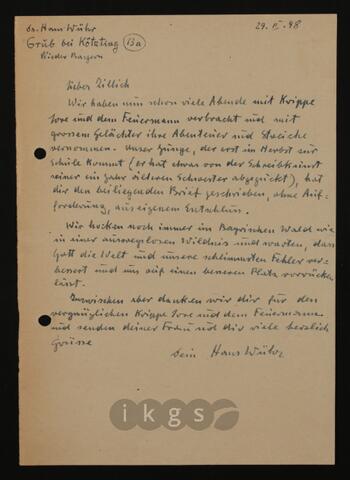 Dr. Hans Wühr
29. VI. 48
Grub bei Kötzting 13a
Nieder Bayern
Lieber Zillich
Wir haben nun schon viele Abende mit Krippe
Lore und dem Feuermann verbracht und mit
grossem Gelächter ihre Abenteuer und Streiche
vernommen. Unser Junge, der erst im Herbst zur
Schule kommt (er hat etwas von der Schreibkunst
seiner ein Jahr älteren Schwester abgeguckt), hat
dir den beiliegenden Brief geschrieben, ohne Auf-
forderung, aus eigenem Entschluss.
Wir hocken noch immer im Bayrischen Wald wie
in einer ausweglosen Wildnis und warten, dass
Gott die Welt und unsere schlimmsten Fehler ver-
bessert und uns auf einen besseren Platz vorrücken
lässt.
Inzwischen aber danken wir dir für den
vergnüglichen Krippe Lore und dem Feuermann
und senden deiner Frau und dir viele herzlich
Grüsse
Dein Hans Wühr
ikgs